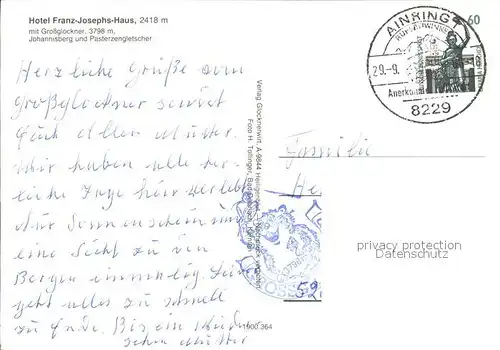 Hotel Franz-Josephs-Haus, 2418 m
mit Großglockner, 3798 m,
Johannisberg und Pasterzengletscher
Herzliche Grüße vom
Großglockner sendet
Euch allen Mutter.
Wir haben alle herr-
liche Tage hier verlebt
Nur Sonnenschein und
eine Sicht zu den
Bergen einmalig. Leider
geht alles zu schnell
zu Ende. Bis ein Wieder-
sehn Mutter
Verlag Glocknerwirt, A-9844 Heiligenblut
Foto H. Tollinger
1900 364
AINRING 1
29.-9.
8229
60
Familie
He
privacy protection
Datenschutz
52